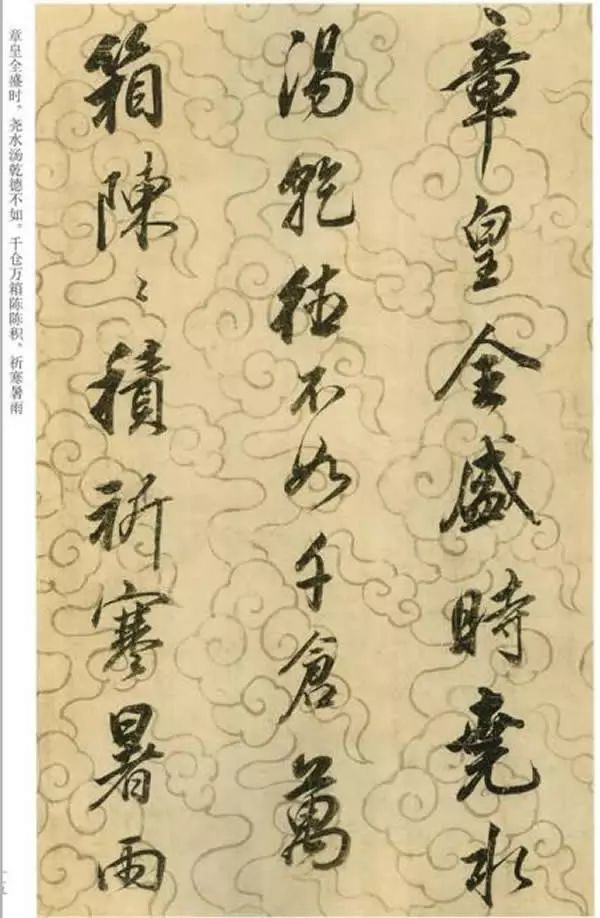 章皇全盛時堯水
湯乹德不如千倉萬
箱陳〻積祈寒暑雨
章皇全盛时，尧水汤乾德不如。千仓万箱陈陈积，祈寒暑雨
一五